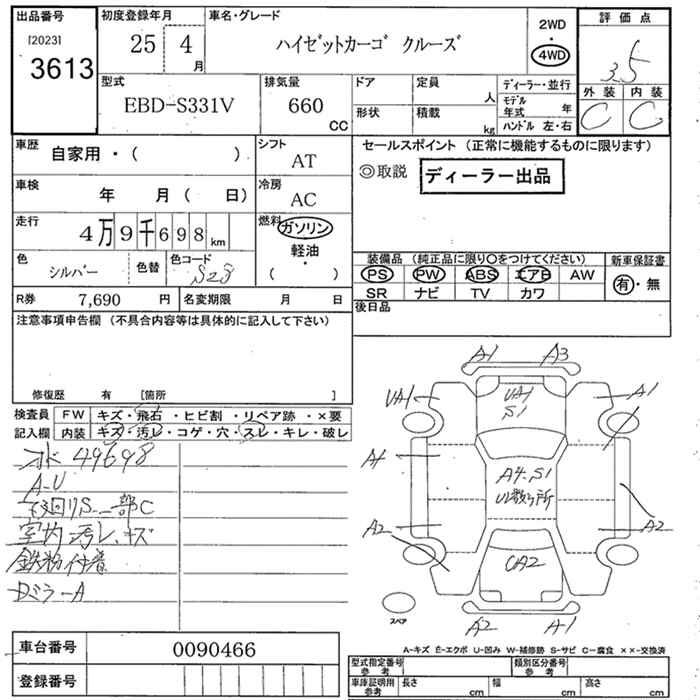 出品番号
[2023]
3613
初度登録年月
25 4
月
車名・グレード
ハイゼットカーゴ クルーズ
2WD
・
4WD
評価点
3.5
外装 内装
C C
型式
EBD-S331V
排気量
660
CC
ドア
形状
定員
人
積載
kg
ディーラー・並行
モデル年式 年
ハンドル 左・右
車歴
自家用・( )
シフト
AT
車検
年 月( 日)
冷房
AC
走行
4万9千698km
燃料
ガソリン
・
軽油
( )
色
シルバー
色替
色コード
S28
R券
7,690 円
名変期限 月 日
セールスポイント (正常に機能するものに限ります)
◎取説
ディーラー出品
装備品 (純正品に限り○をつけてください)
PS PW ABS エアB AW
SR ナビ TV カワ
新車保証書
有・無
後日品
注意事項申告欄 (不具合内容等は具体的に記入して下さい)
修復歴 有 [箇所 ]
検査員記入欄
FW キズ・飛石・ヒビ割・リペア跡・×要
内装 キズ・汚レ・コゲ・穴・スレ・キレ・破レ
49698
A-U
下回りS 一部C
室内汚レ、キズ
鉄粉付着
DミラーA
A1 A3
UA1 UA1 S1 A1
A4 A4.S1
UL数ヶ所
A2 A2
UA2
A2 A1
スペア
A-キズ E-エクボ U-凹み W-補修跡 S-サビ C-腐食 ××-交換済
車台番号
0090466
登録番号
型式指定番号
参考
類別区分番号
参考
車庫証明用
参考
長さ cm 幅 cm 高さ cm